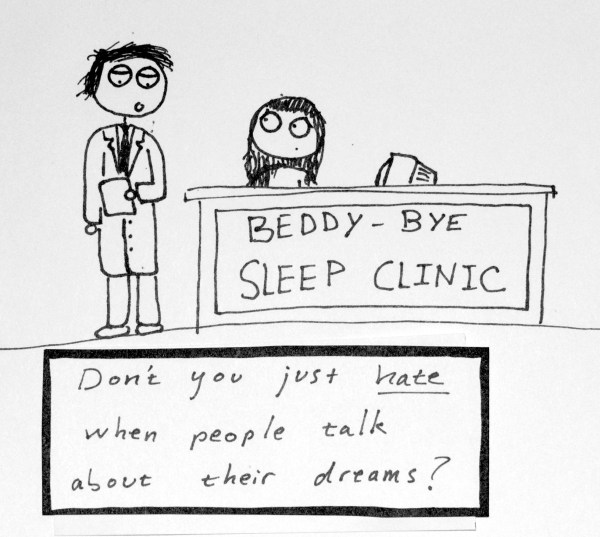 BEDDY-BYE
SLEEP CLINIC
Don't you just hate
when people talk
about their dreams?